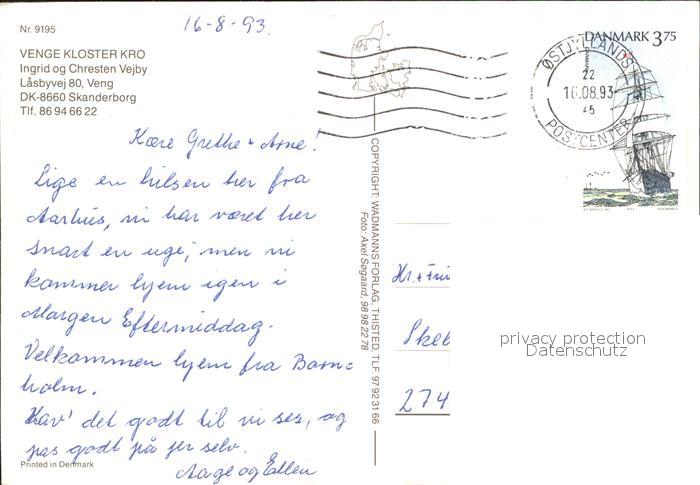 Nr. 9195
16-8-93.
VENGE KLOSTER KRO
Ingrid og Chresten Vejby
Låsbyvej 80, Veng
DK-8660 Skanderborg
Tlf. 86 94 66 22
Kære Grethe + Arne!
Lige en hilsen her fra
Aarhus, vi har været her
snart en uge, men vi
kommer hjem igen i
Morgen Eftermiddag.
Velkommen hjem fra Born=
holm.
Hav' det godt til vi ses, og
pas godt på jer selv.
Aage og Ellen
Printed in Denmark
COPYRIGHT: WADMANNS FORLAG, THISTED, TLF. 97 92 31 66
Foto: Axel Søgaard, 98 98 22 78
DANMARK 3.75
ØSTJYLLANDS
22
16.08.93
POSTCENTER
Hr. + Fru
Skel
274
privacy protection
Datenschutz